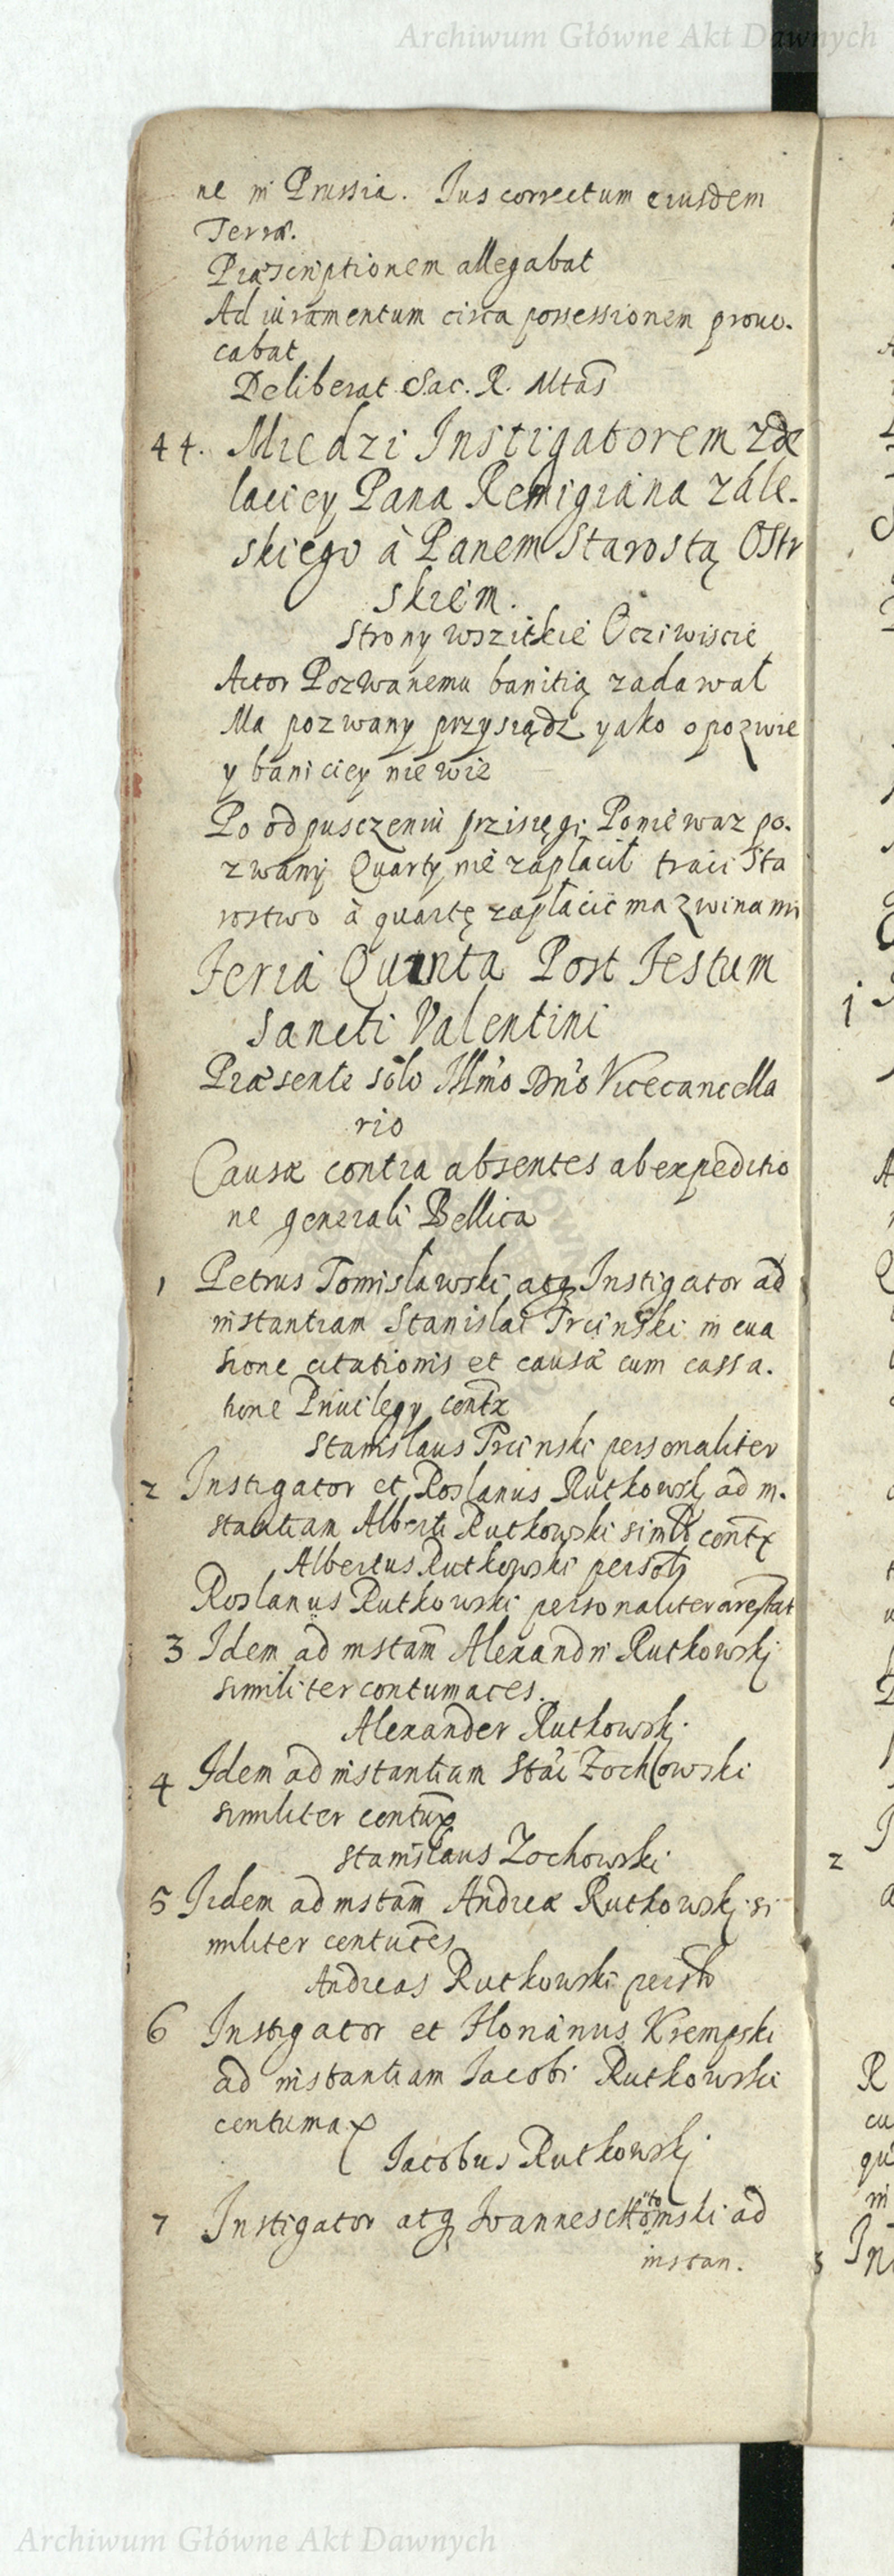 Archiwum Główne Akt Dawnych
ne in Prussia. Ius correctum eiusdem
Terræ.
Præscriptionem allegabat
Ad iuramentum circa possessionem prouo-
cabat
Deliberat Sac. R. Mtas
44. Miedzi Instigatorem z de
laciey Pana Remigiana Zale-
skiego à Panem Starostą Ostr
skiem.
Strony wszitkie Ocziwiscie
Actor Pozwanemu banitią zadawał
Ma pozwany przysiądz yako o pozwie
y baniciey nie wie
Po odpusczeniu przisięgi Poniewaz po-
zwany Quarty nie zapłacił traci Sta
rostwo à quartę zapłacic ma z winami
Feria Quinta Post Festum
Sancti Valentini
Præsente solo Illmo Dno Vicecancella
rio
Causæ contra absentes ab expeditio
ne generali Bellica
1 Petrus Tomisławski atq Instigator ad
instantiam Stanislai Trcinski in eua
sione citationis et causæ cum cassa-
tione Priuilegy contx
Stanislaus Trcinski personaliter
2 Instigator et Roslanus Rutkowskj ad in-
stantiam Alberti Rutkowski simlr contx
Albertus Rutkowski persolr
Roslanus Rutkowski personaliter arestat
3 Idem ad instam Alexandri Rutkowskj
similiter contumaces.
Alexander Rutkowski
4 Idem ad instantiam Stai Zochowski
similiter contux
Stanislaus Zochowski
5 Iidem ad instam Andreæ Rutkowskj si
militer contuces
Andreas Rutkowski persolr
6 Instigator et Florianus Krempski
ad instantiam Iacobi Rutkowski
contumax
Iacobus Rutkowskj
7 Instigator atq Ioannes ad
instan.
Archiwum Główne Akt Dawnych